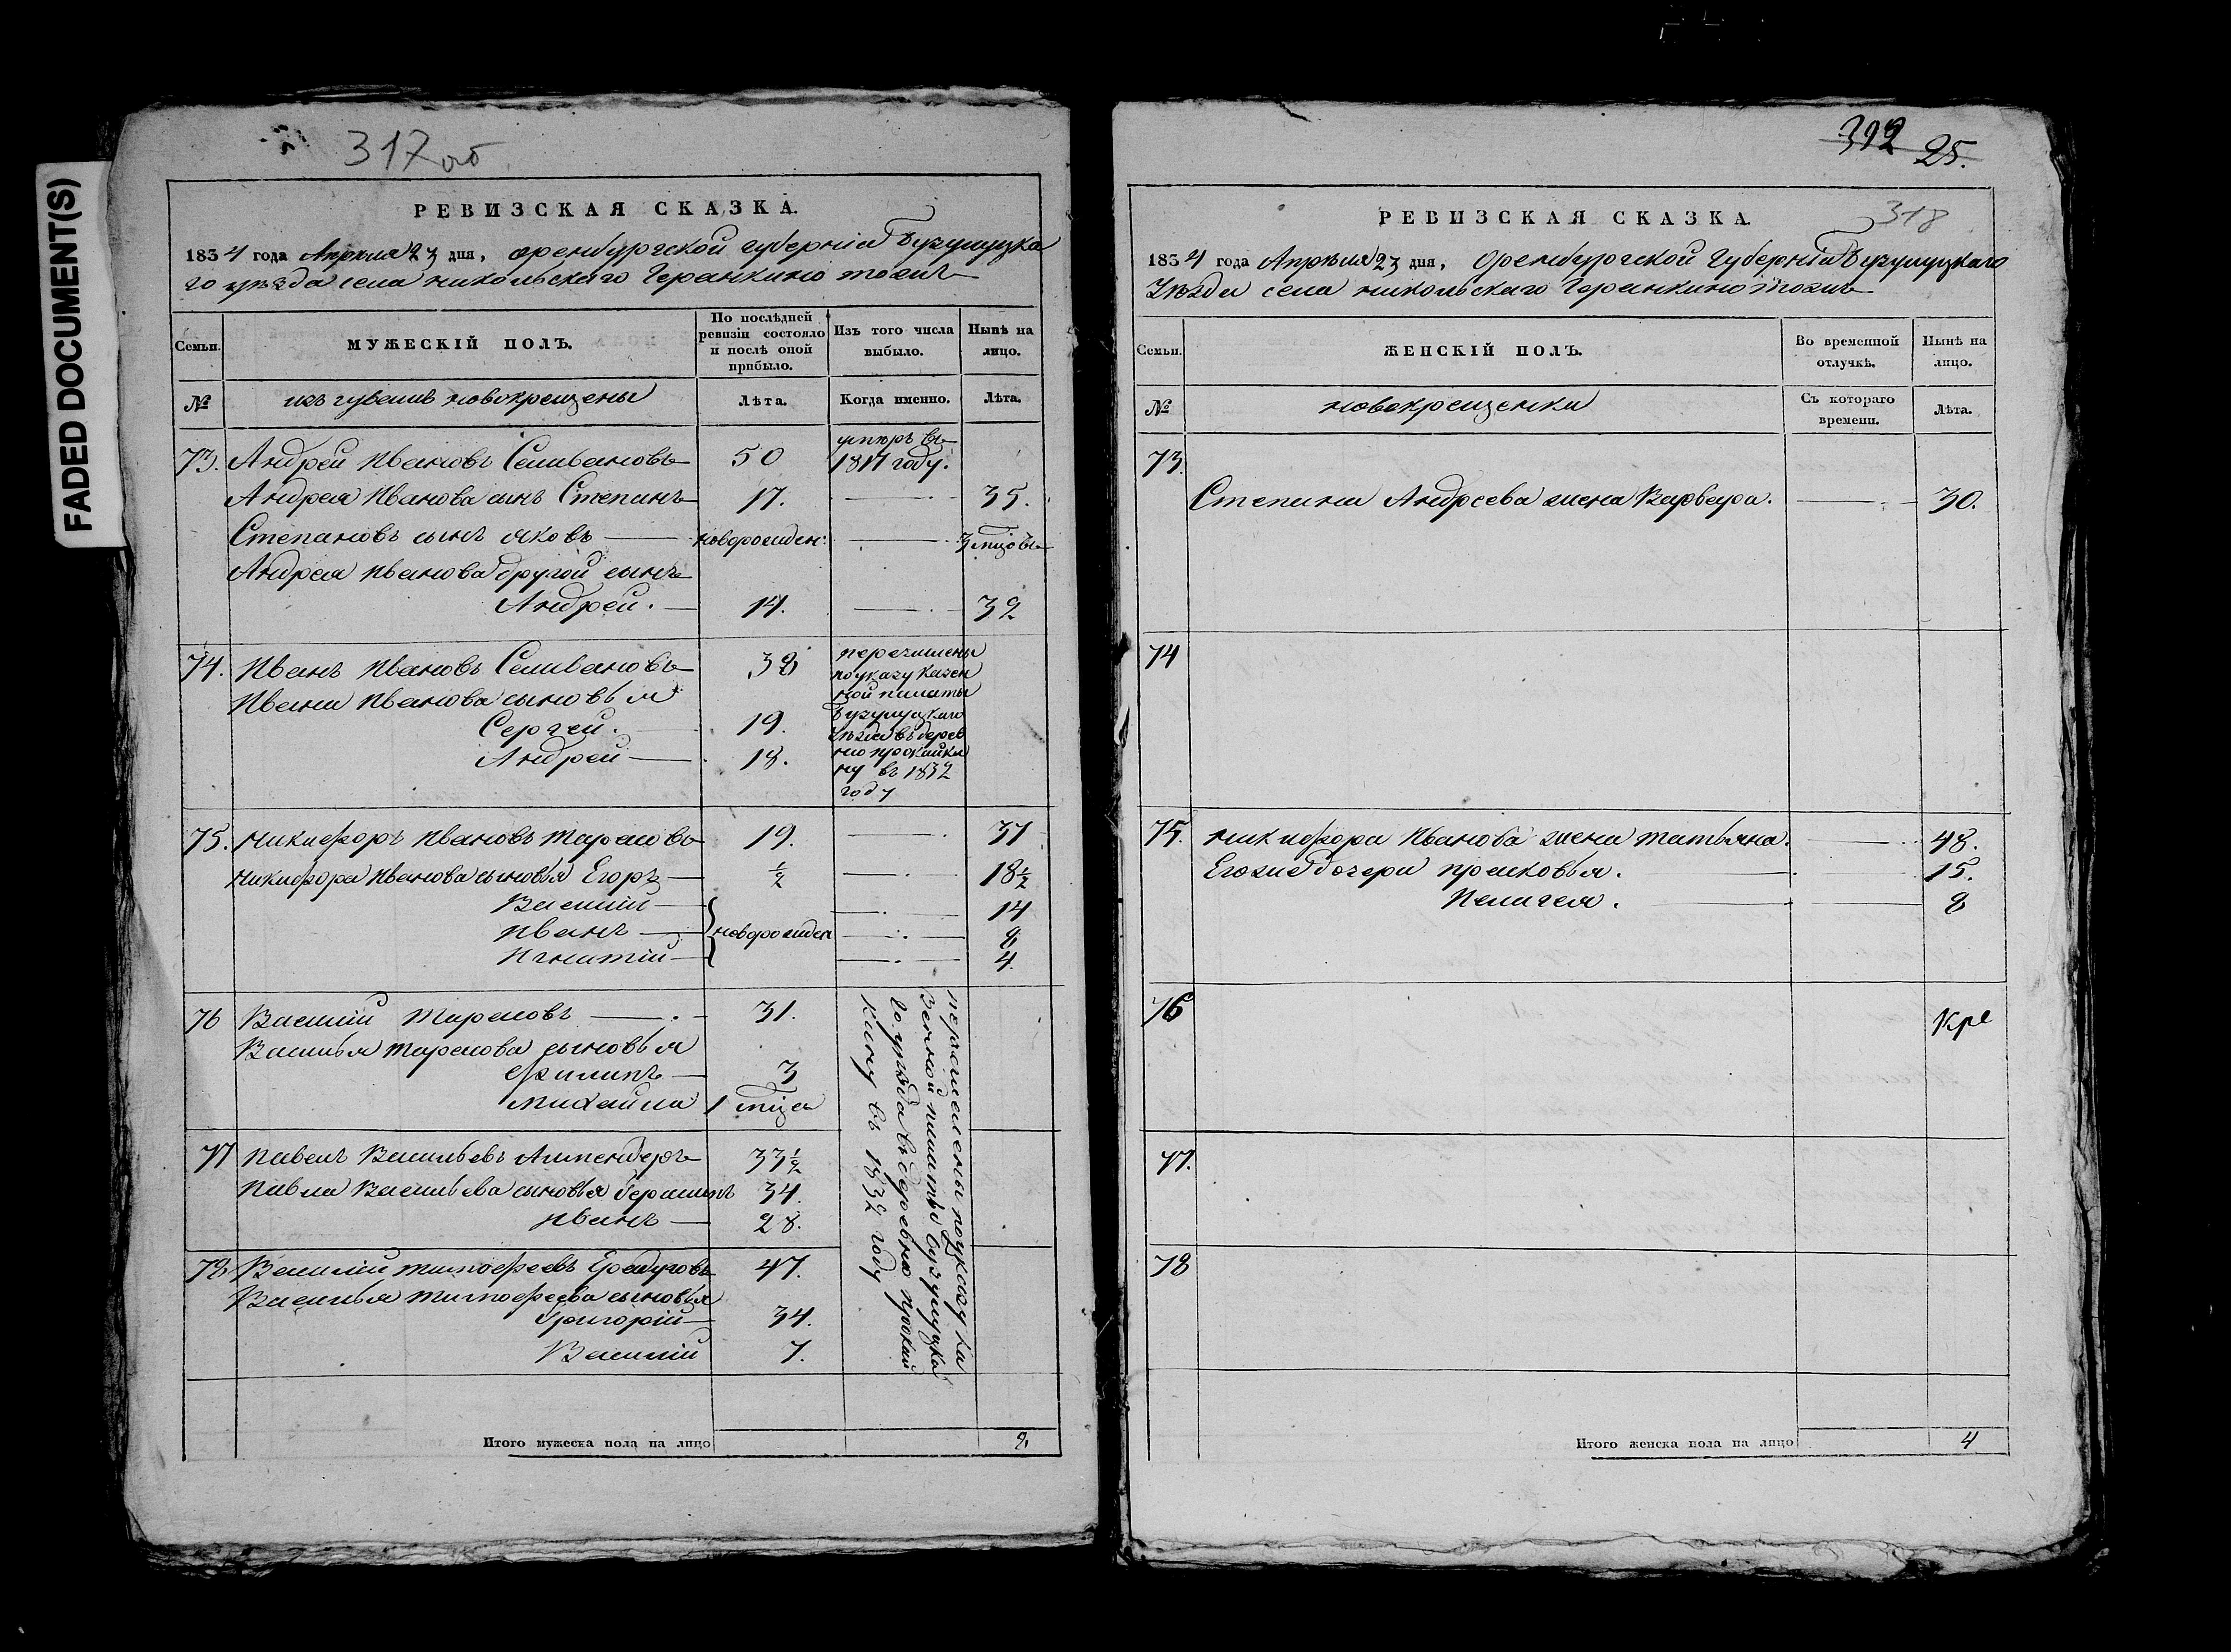 FADED DOCUMENT(S)
317 об
РЕВИЗСКАЯ СКАЗКА.
1834 года Апреля 23 дня, оренбургской губерніи Бузулуцка
го уезда села никольскаго Геранкино тожъ
Семьи.
МУЖЕСКІЙ ПОЛЪ.
По послѣдней ревизіи состояло и послѣ оной прибыло.
Изъ того числа выбыло.
Нынѣ на лицо.
№
изъ чувашъ новокрещены
Лѣта.
Когда именно.
Лѣта.
умпръ въ
73. Андрей Ивановъ Селивановъ 50 1817 году.
Андрея Иванова сынъ Степанъ 17. 35.
Степановъ сынъ яковъ новорожден: 3 мцовъ
Андрея Иванова другой сынъ
Андрей. 14. 32
74. Иванъ Ивановъ Селивановъ 38 перечислены
Ивана Иванова сыновья
поуказу казен
ной палаты
Сергей. 19. Бузулуцкаго
уезда въ дерев
Андрей 18. ню
ну въ 1832
году
75. никифоръ Ивановъ тарасовъ 19. 37
никифора Иванова сыновья Егоръ ½ 18½
Василій 14
иванъ новорожден 8
Игнатій 4.
76 Василій тарасовъ 31.
Василья тарасова сыновья
филипъ 3
михайла 1 мца
77 павелъ Васильевъ 33½
павла Васильева сыновья Герасимъ 34.
иванъ 28.
78 Василій тимофеевъ 47.
Василья тимофеева сыновья
Григорій 34.
Василій 7.
перечислены поуказу ка
зенной палаты бузулуцка
го уезда въ деревню
кину въ 1832 году
Итого мужеска пола на лицо 8
312 25.
318
РЕВИЗСКАЯ СКАЗКА
1834 года Апреля 23 дня, Оренбургской Губерніи Бузулуцкаго
Уезда села никольскаго Геранкино тожъ
Семьи.
ЖЕНСКІЙ ПОЛЪ.
Во временной отлучкѣ.
Нынѣ на лицо.
№
новокрещенки
Съ котораго времени.
Лѣта.
73.
Степана Андреева жена Варвара. 30.
74
75. никифора Иванова жена татьяна. 48.
Егоже дочери прасковья. 15.
Пелагея. 8
76
Кре
77.
78
Итого женска пола на лицо 4